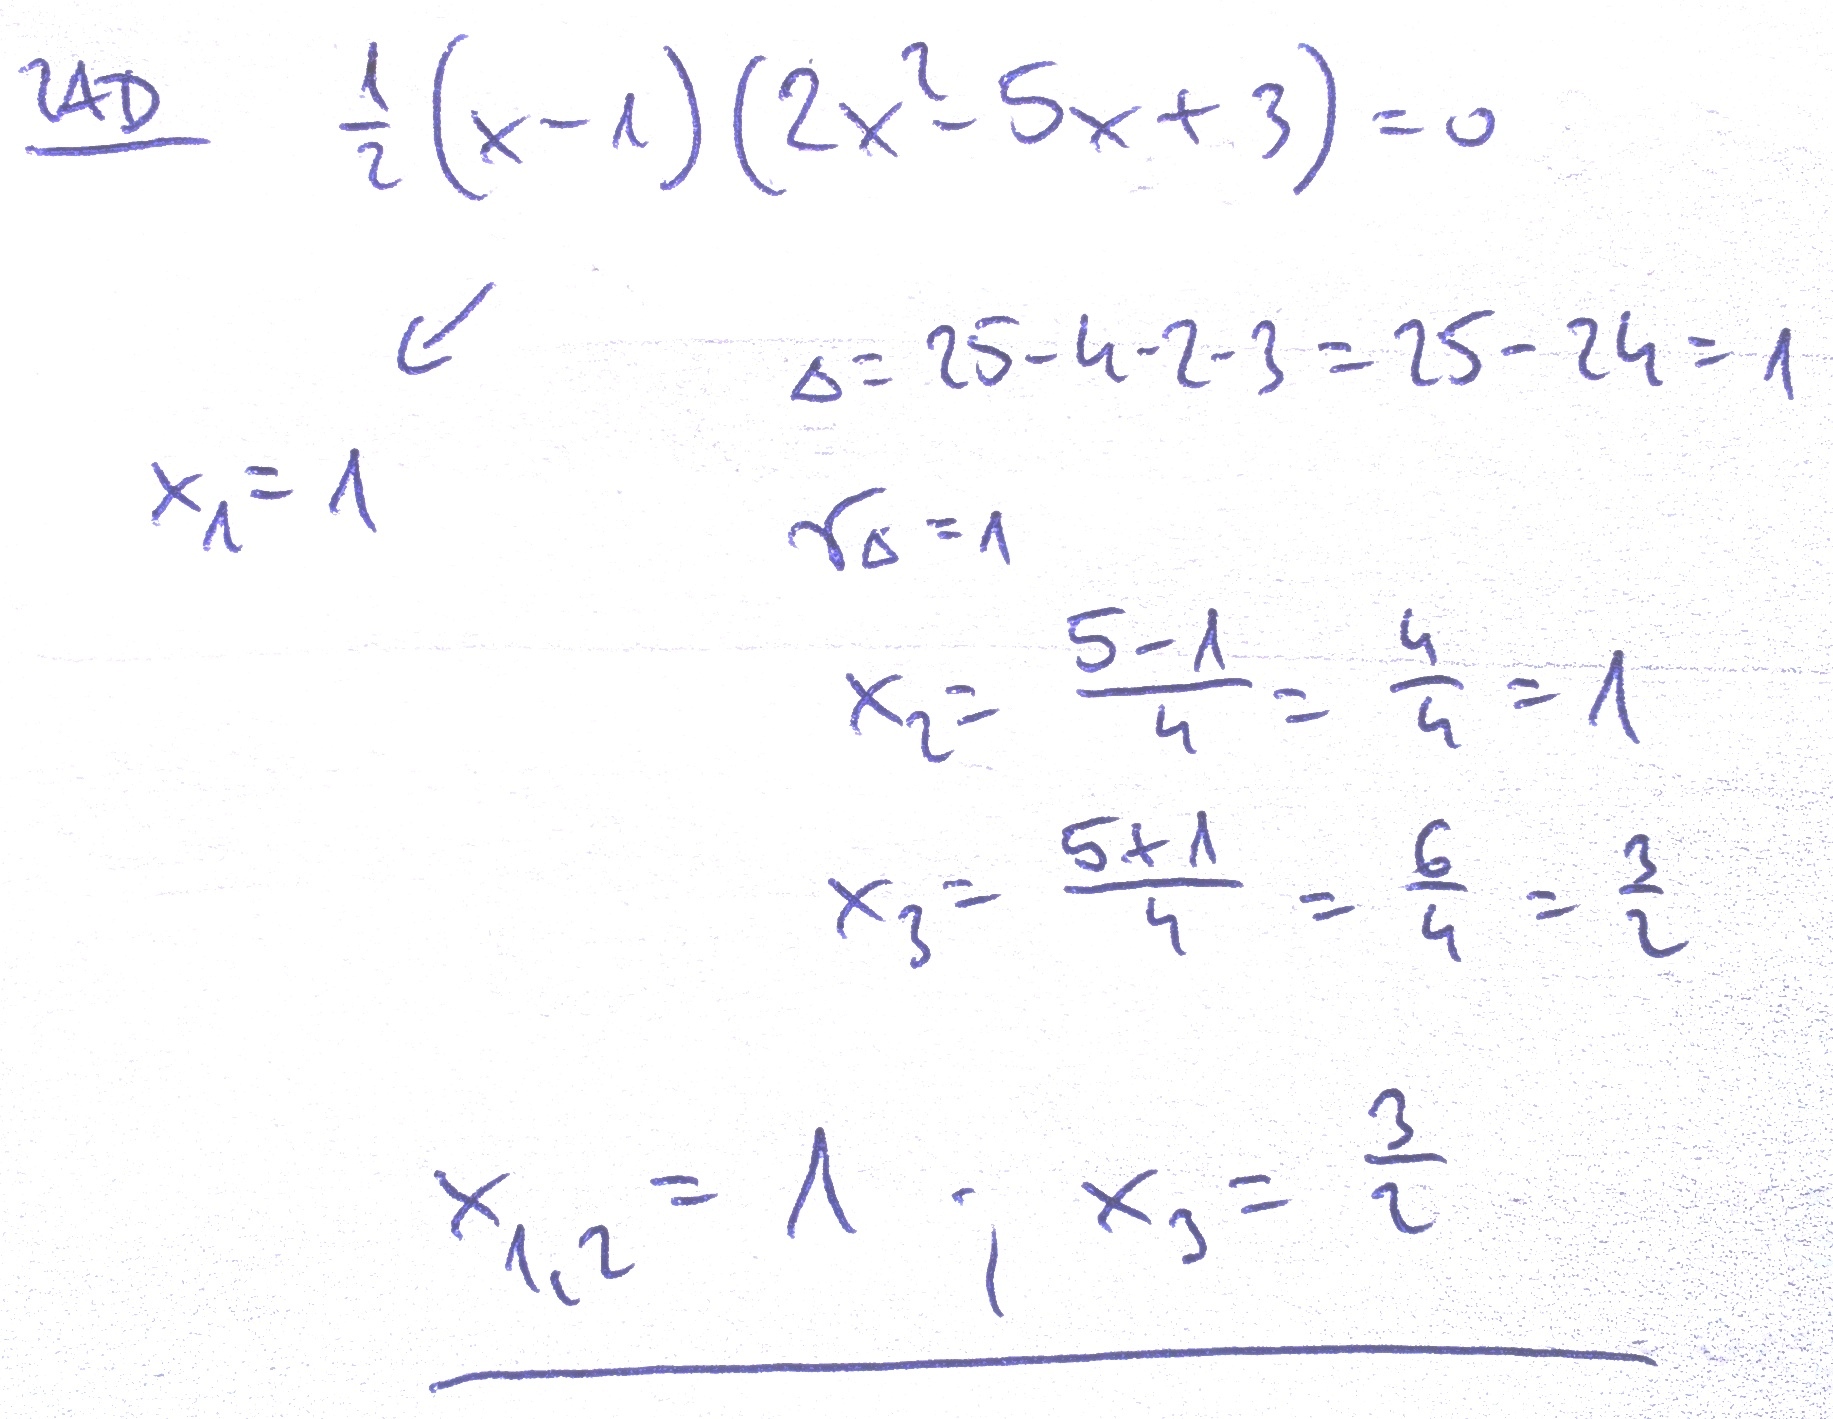 ZAD 1/2 (x-1)(2x²-5x+3)=0
Δ=25-4·2·3=25-24=1
x₁=1
√Δ=1
x₂=(5-1)/4=4/4=1
x₃=(5+1)/4=6/4=3/2
x₁,₂=1 ; x₃=3/2